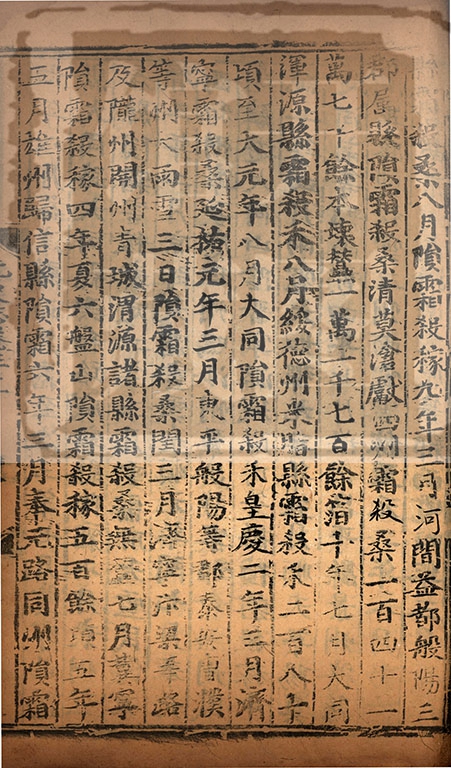 縣霜殺桑八月隕霜殺稼九年三月河間益都般陽三
郡屬縣隕霜殺桑清莫滄獻四州霜殺桑二百四十一
萬七千餘本壞蠶一萬二千七百餘箔十年七月大同
渾源縣霜殺禾八月綏德州米脂縣霜殺禾二百八十
頃至大元年八月大同隕霜殺禾皇慶二年三月濟
寧霜殺桑延祐元年三月東平般陽等郡泰安曹濮
等州大雨雪三日隕霜殺桑閏三月濟寧汴梁等路
及隴州開州青城渭源諸縣霜殺桑無蠶七月冀寧
隕霜殺稼四年夏六盤山隕霜殺稼五百餘頃五年
五月雄州歸信縣隕霜六年三月奉元路同州隕霜